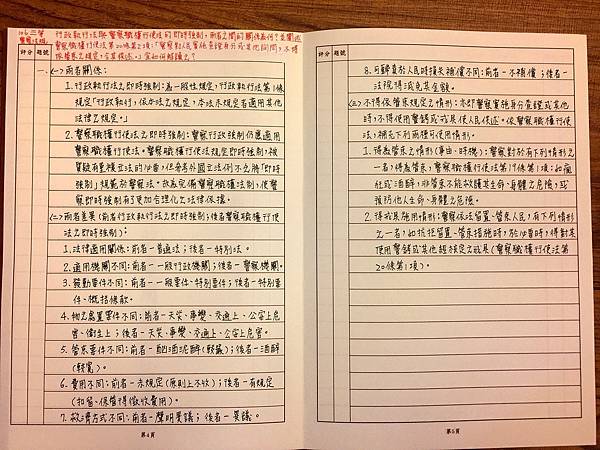 106三等
警察法規
行政執行法與警察職權行使法的即時強制,兩者之間的關係為何?並闡述
警察職權行使法第20條第2項:「警察對人民實施查證身分或其他詢問,不得
依管束之規定,令其供述。」當如何解讀之?
評分 題號
一、(一)兩者關係:
1. 行政執行法之即時強制:為一般性規定,行政執行法第1條
規定「行政執行,依本法之規定,本法未規定者適用其他
法律之規定。」
2. 警察職權行使法之即時強制:警察行政強制仍應適用
警察職權行使法。警察職權行使法規定即時強制,被
質疑有重複立法的必要,但參考外國立法例不乏將「即時
強制」規範於警察法。故為完備警察職權法制,使警
察即時強制有了更加合理化之法律保障。
(二)兩者差異(前者行政執行法之即時強制;後者警察職權行使
法之即時強制):
1. 法律適用關係:前者-普通法;後者-特別法。
2. 適用機關不同:前者-一般行政機關;後者-警察機關。
3. 發動要件不同:前者-一般要件、特別要件;後者-特別要
件、概括條款。
4. 物之處置要件不同:前者-天災、事變、交通上、公安上危
害、衛生上;後者-天災、事變、交通上、公安上危害。
5. 管束要件不同:前者-酗酒泥醉(較嚴);後者-酒醉
(較寬)。
6. 費用不同:前者-未規定(原則上不收);後者-有規定
(扣留、保管得徵收費用)。
7. 救濟方式不同:前者-聲明異議;後者-異議。
第4頁
評分 題號
8. 可歸責於人民時損失補償不同:前者-不補償;後者-
法院得減免其金額。
(三)不得依管束規定之情形:亦即警察實施身分查證或其他
時,不得使用警銬或戒具使人民供述。依警察職權行使
法,補充下列兩種可使用情形。
1. 得為管束之情形(事由、時機):警察對於有下列情形之
一者,得為管束,警察職權行使法第19條第1項:如瘋
狂或酒醉,非管束不能救護其生命、身體之危險,或
預防他人生命、身體之危險。
2. 得戒具施用情形:警察依法留置、管束人民,有下列情形
之一者,如抗拒留置、管束措施時,於必要時,得對其
使用警銬或其他經核定之戒具(警察職權行使法第
20條第1項)。
第5頁